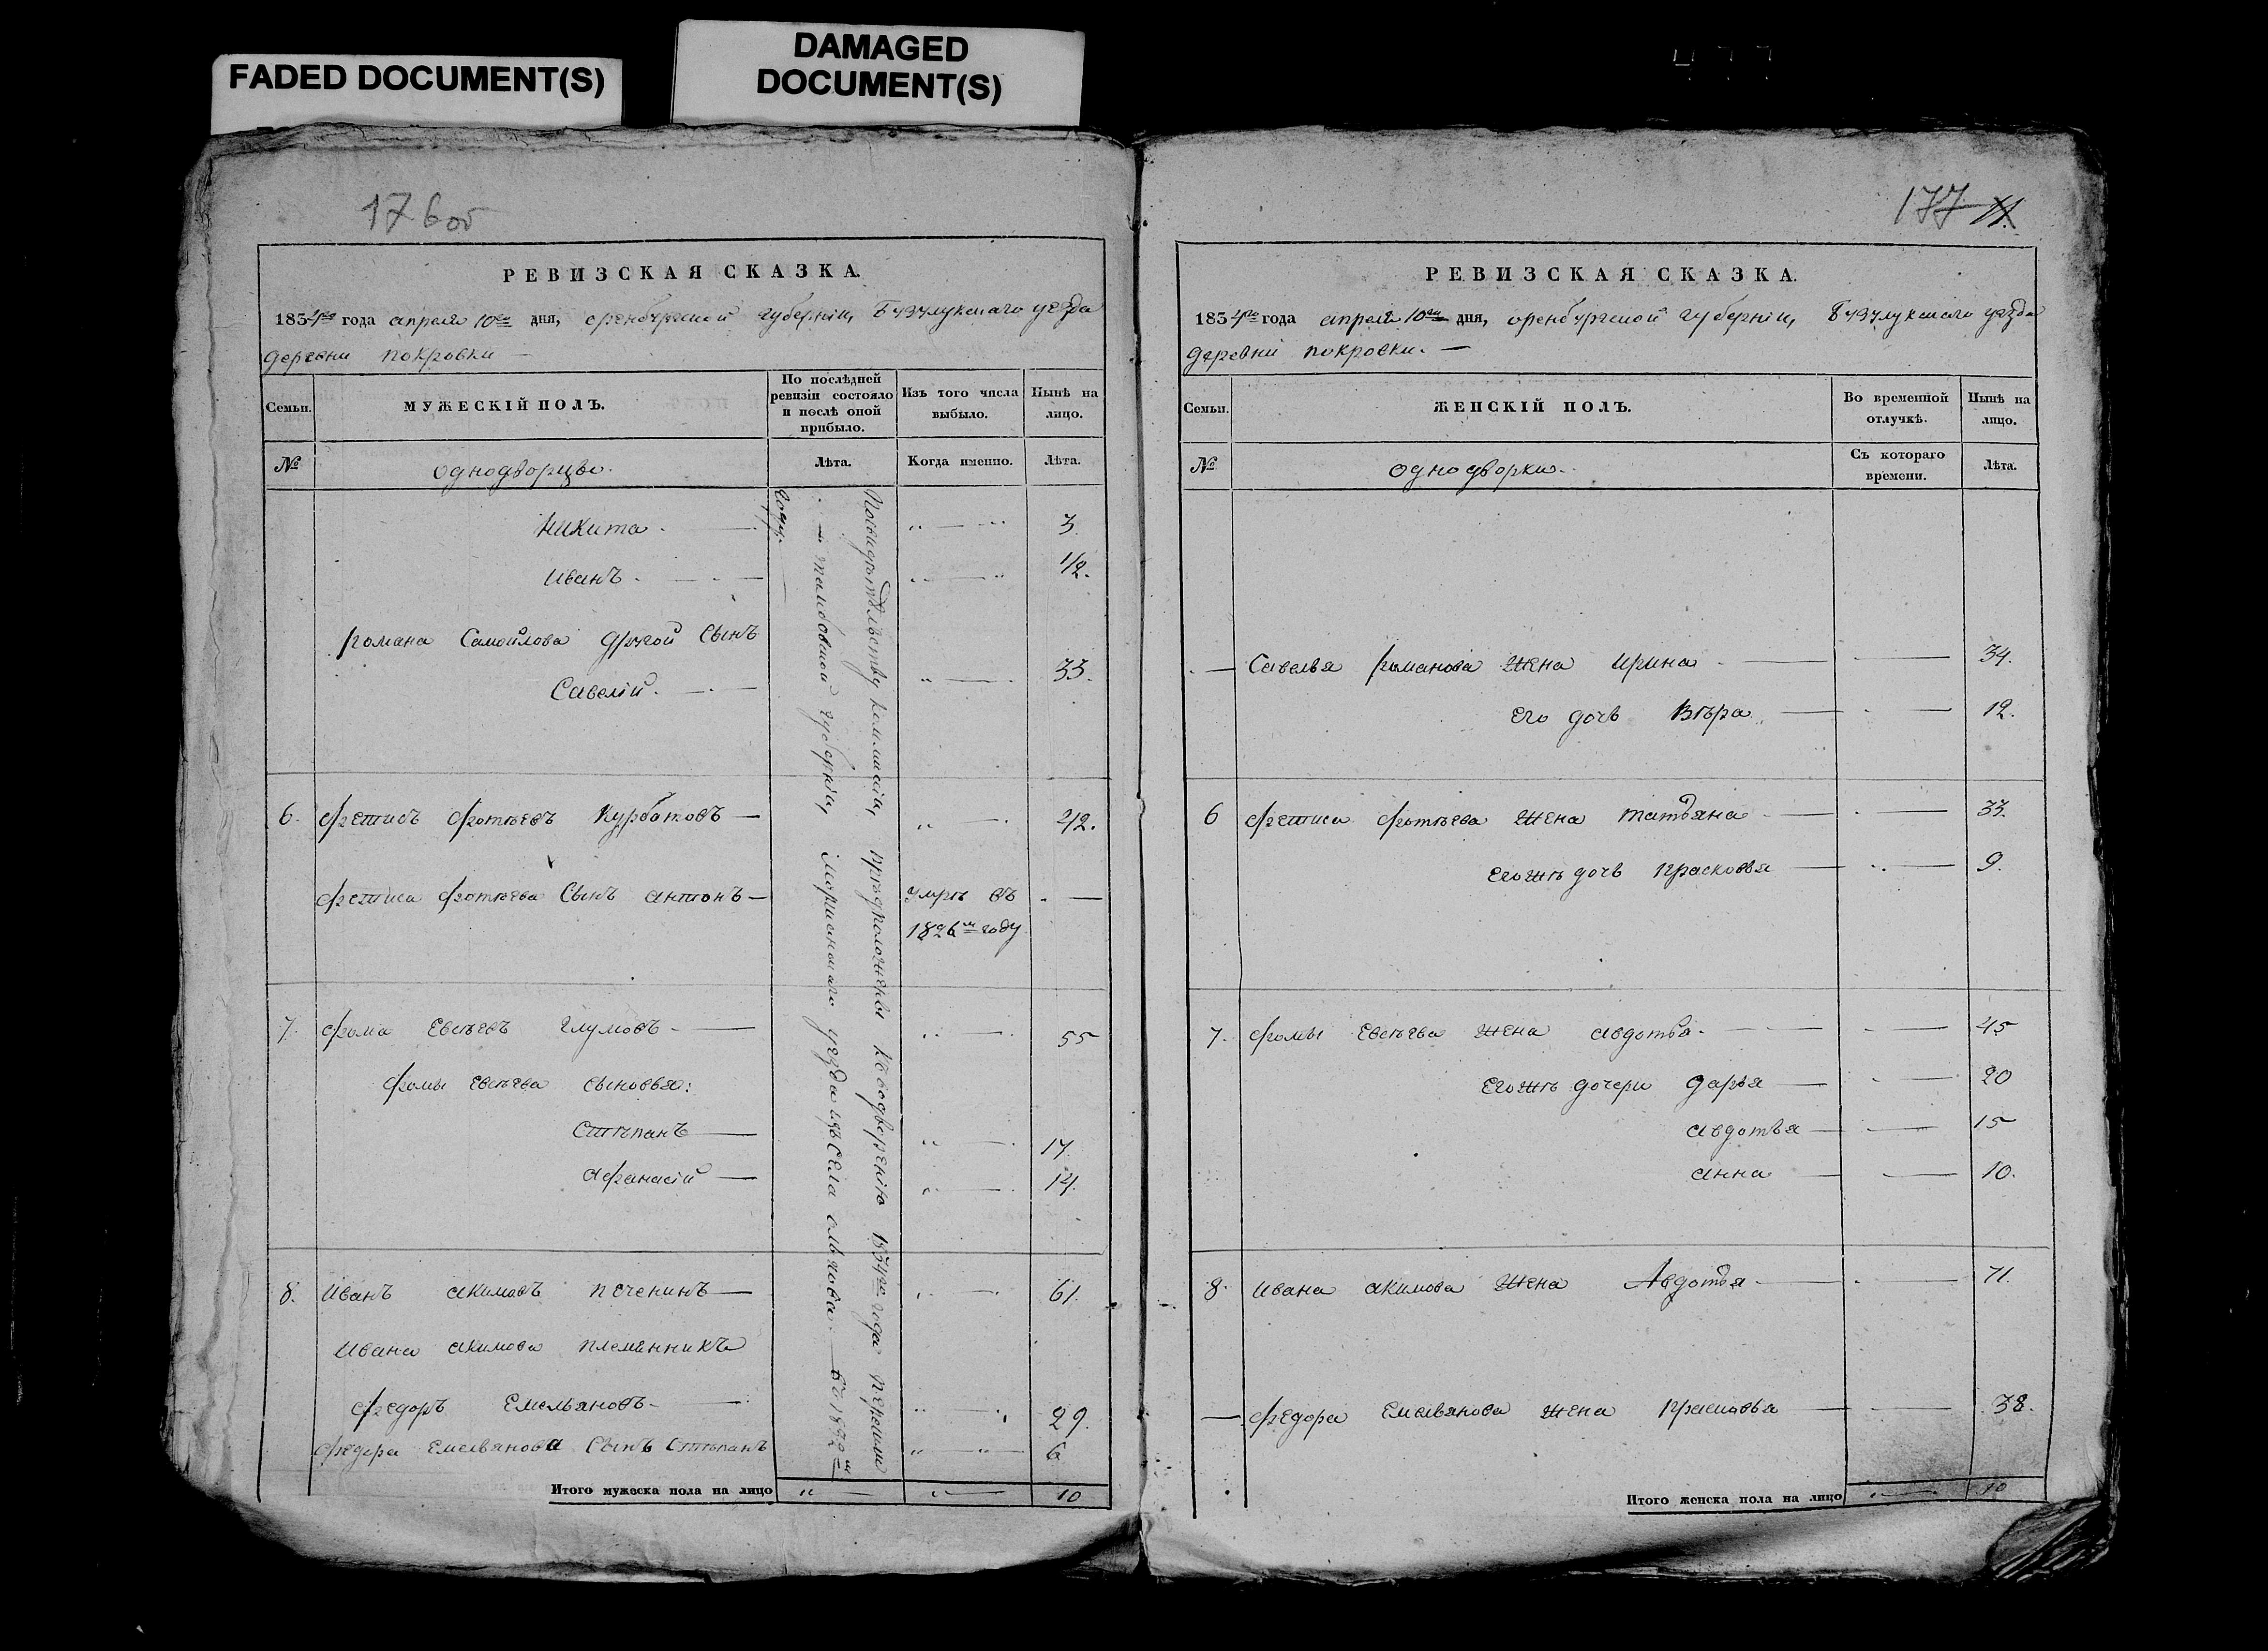 FADED DOCUMENT(S)
DAMAGED
DOCUMENT(S)
176 об
РЕВИЗСКАЯ СКАЗКА.
1834го года апреля 10го дня, оренбургской губернии, Бузулукского уезда
деревни покровки —
Семьи.
МУЖЕСКІЙ ПОЛЪ.
По послѣдней
ревизіи состояло
и послѣ оной
прибыло.
Изъ того числа
выбыло.
Нынѣ на
лицо.
№
однодворцы.
Лѣта.
Когда именно.
Лѣта.
Никита. 3
Иванъ. 1/2.
романа Самойлова другой Сынъ
Савелій. 33.
6. фетисъ фотѣевъ Курбатовъ — 42.
фетиса фотѣева Сынъ антонъ — умръ въ
1826м году
7. фома Евсѣевъ глумовъ — 55
фомы Евсѣева сыновья:
Стѣпанъ — 17.
афанасій — 14.
8. Иванъ акимовъ печенинъ — 61.
Ивана акимова племянникъ
федоръ Емельяновъ — 29.
федора Емельянова Сынъ Стѣпанъ 6
Итого мужеска пола на лицо 10
тамбовской губерніи, уезда изъ Села — въ 1832м
году.
177
РЕВИЗСКАЯ СКАЗКА.
1834го года апреля 10го дня, оренбургской губернии, Бузулукского уезда
деревни покровки. —
Семьи.
ЖЕНСКІЙ ПОЛЪ.
Во временной
отлучкѣ.
Нынѣ на
лицо.
№
однодворки.
Съ котораго
времени.
Лѣта.
— Савелья романова жена Ирина 34.
Его дочь Вѣра 12.
6 фетиса фотѣева жена татьяна 33.
Егожъ дочь прасковья 9.
7. фомы Евсѣева жена авдотья. 45
Егожъ дочери дарья 20
авдотья 15
анна 10.
8. Ивана акимова жена Авдотья 71.
— федора Емельянова жена прасковья 38.
Итого женска пола на лицо 10